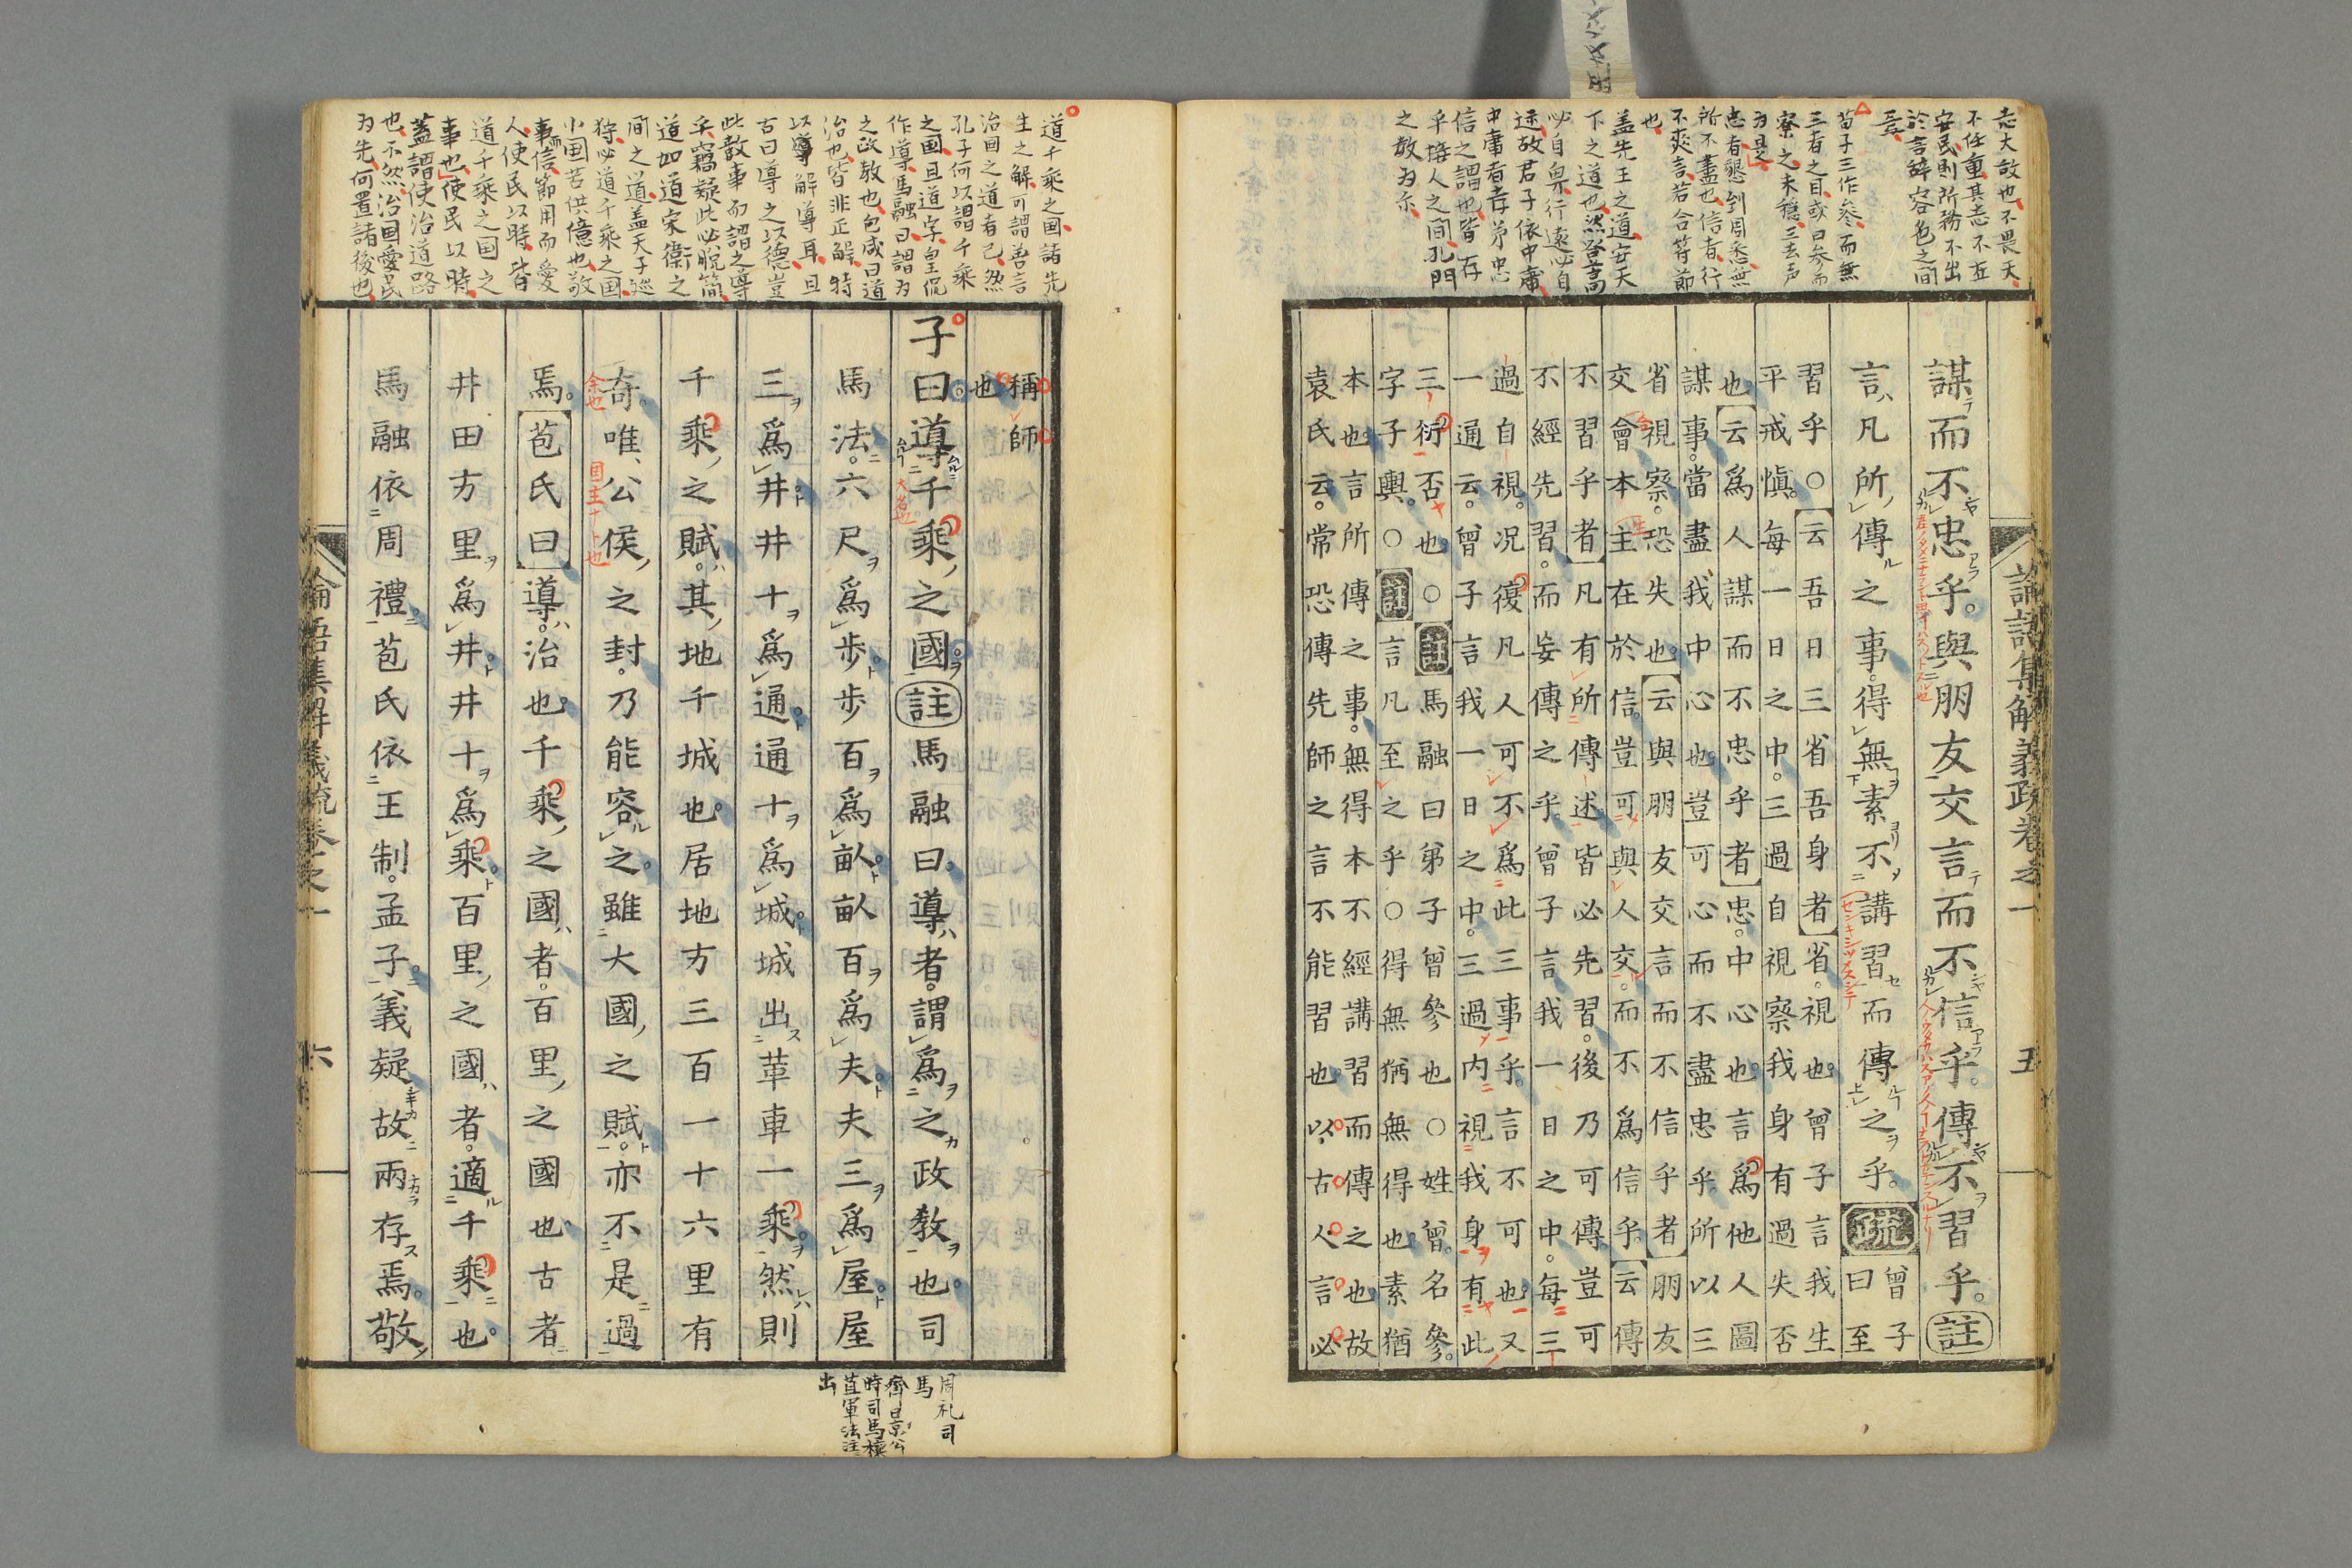 志大故也不畏天
不任重其志不在
安民則所務不出
於言辭容色之間
耳
荀子三作參而無
三者之目或曰參而
察之未穩三去声
為是
忠者懇到周悉無
所不盡也信者行
不爽言若合符節
也
蓋先王之道安天
下之道也然登高
必自卑行遠必自
迩故君子依中庸
中庸者孝弟忠
信之謂也皆存
乎接人之間孔門
之教为尓
論語集解義疏卷之一 五
謀而不忠乎。與朋友交言而不信乎。傳不習乎。註
言凡所傳之事。得無素不講習而傳之乎。疏曾子曰至
習乎○云吾日三省吾身者省。視也曾子言我生
平戒慎。每一日之中。三過自視察我身有過失否
也云爲人謀而不忠乎者忠。中心也言爲他人圖
謀事。當盡我中心也豈可心而不盡忠乎所以三
省視察。恐失也云與朋友交言而不信乎者朋友
交會本主在於信。豈可與人交。而不爲信乎云傳
不習乎者凡有所傳述皆必先習。後乃可傳豈可
不經先習。而妄傳之乎曾子言我一日之中。每三
過自視。况復凡人可不爲此三事乎。言不可也又
一通云。曾子言我一日之中。三過内視我身有此
三衍否也○註馬融曰弟子曾參也○姓曾。名參。
字子輿。○註言凡至之乎○得無猶無得也素猶
本也言所傳之事。無得本不經講習而傳之也故
袁氏云。常恐傳先師之言不能習也以古人言必
道千乘之国諸先
生之解可謂善言
治国之道者已然
孔子何以謂千乘
之国且道字皇侃
作導馬融曰謂为
之政教也包咸曰道
治也皆非正解特
以導解導耳且
古曰導之以德豈
此敬事而謂之導
乎竊疑此必脫簡
道如道宋衛之
間之道蓋天子巡
狩必道千乘之国
小国苦供億也敬
事而信節用而愛
人使民以時皆
道千乘之国之
事也使民以時
蓋謂使治道路
也不然治国愛民
为先何置諸後也
稱師
也
子曰導千乘之國註馬融曰導者。謂爲之政教也司
馬法。六尺爲步步百爲畝畝百爲夫夫三爲屋屋
三爲井井十爲通通十爲城城出革車一乘然則
千乘之賦。其地千城也居地方三百一十六里有
奇。唯公侯之封。乃能容之。雖大國之賦。亦不是過
焉。苞氏曰導。治也千乘之國者。百里之國也古者
井田方里爲井井十爲乘百里之國者。適千乘也。
馬融依周禮苞氏依王制。孟子義疑故兩存焉。敬
論語集解義疏卷之一 六
周礼司
馬
齊景公
時司馬穰
苴軍法注
出